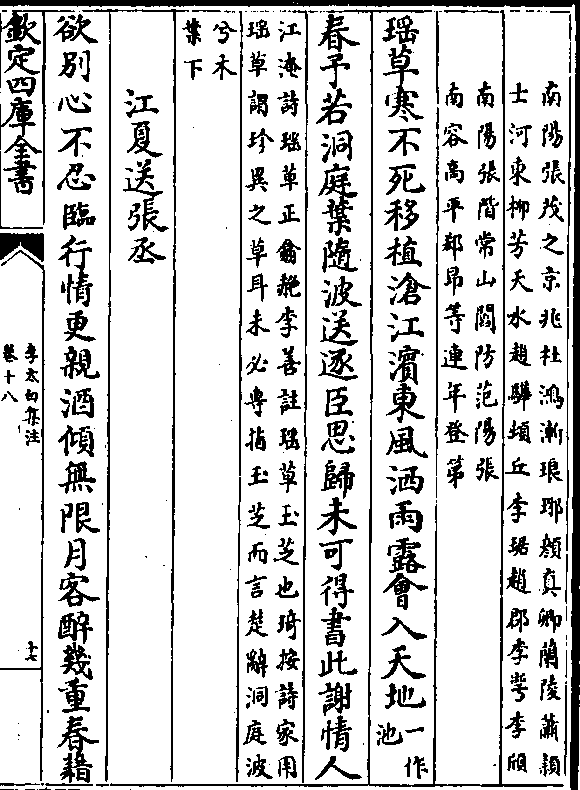 南陽張茂之京兆杜鴻漸琅琊顔真卿蘭陵蕭穎
士河東柳芳天水趙驊頓丘李琚趙郡李崿李頎
南陽張階常山閻防范陽張
南容高平郄昂等連年登第
瑶草寒不死移植滄江濱東風洒雨露會入天地一作
池
春予若洞庭葉隨波送逐臣思歸未可得書此謝情人
江淹詩瑶草正翕赩李善註瑶草玉芝也琦按詩家用
瑶草謂珍異之草耳未必專指玉芝而言楚辭洞庭波
兮木
葉下
江夏送張丞
欲别心不忍臨行情更親酒傾無限月客醉幾重春藉
欽定四庫全書
李太白集注
卷十八
十七